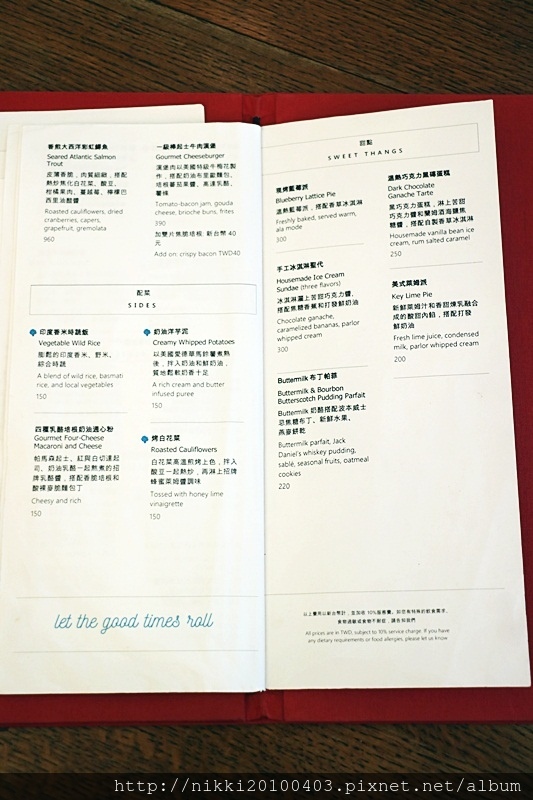 香煎大西洋彩虹鱒魚
Seared Atlantic Salmon
Trout
皮薄香脆，肉質細緻，搭配
熱炒焦化白花菜、酸豆、
柑橘果肉、蔓越莓、檸檬巴
西里油醋醬
Roasted cauliflowers, dried
cranberries, capers,
grapefruit, gremolata
960
一級棒起士牛肉漢堡
Gourmet Cheeseburger
漢堡肉以美國特級牛梅花製
作，搭配奶油布里歐麵包、
培根蕃茄果醬、高達乳酪、
薯條
Tomato-bacon jam, gouda
cheese, brioche buns, frites
390
加雙片焦脆培根: 新台幣 40
元
Add on: crispy bacon TWD40
配菜
SIDES
印度香米時蔬飯
Vegetable Wild Rice
龍鬆的印度香米、野米、
綜合時蔬
A blend of wild rice, basmati
rice, and local vegetables
150
奶油洋芋泥
Creamy Whipped Potatoes
以美國愛德華馬鈴薯煮熟
後，拌入奶油和鮮奶油，
質地鬆軟奶香十足
A rich cream and butter
infused puree
150
四種乳酪培根奶油通心粉
Gourmet Four-Cheese
Macaroni and Cheese
帕馬森起士、紅與白切達起
司、奶油乳酪一起熬煮的招
牌乳酪醬，搭配香脆培根和
酸種麥脆麵包丁
Cheesy and rich
150
烤白花菜
Roasted Cauliflowers
白花菜高溫煎烤上色，拌入
酸豆一起熱炒，再淋上招牌
蜂蜜萊姆醬調味
Tossed with honey lime
vinaigrette
150
let the good times roll
甜點
SWEET THANGS
現烤藍莓派
Blueberry Lattice Pie
溫熱藍莓派，搭配香草冰淇淋
Freshly baked, served warm,
ala mode
300
溫熱巧克力熔磚蛋糕
Dark Chocolate
Ganache Tarte
黑巧克力蛋糕，淋上苦甜
巧克力和蘭姆酒海鹽焦
糖醬，搭配自製香草冰淇淋
Housemade vanilla bean ice
cream, rum salted caramel
250
手工冰淇淋聖代
Housemade Ice Cream
Sundae (three flavors)
冰淇淋灑上苦甜巧克力醬，
搭配焦糖香蕉和打發鮮奶油
Chocolate ganache,
caramelized bananas, parlor
whipped cream
300
美式萊姆派
Key Lime Pie
新鮮萊姆汁和香甜煉乳融合
成的酸甜內餡，搭配打發
鮮奶油
Fresh lime juice, condensed
milk, parlor whipped cream
200
Buttermilk 布丁帕菲
Buttermilk & Bourbon
Butterscotch Pudding Parfait
Buttermilk 奶酪搭配波本威士
忌焦糖布丁、新鮮水果、
燕麥餅乾
Buttermilk parfait, Jack
Daniel's whiskey pudding,
sablé, seasonal fruits, oatmeal
cookies
220
以上費用以新台幣計，並加收 10%服務費。如您有特殊的飲食需求、
食物過敏或食物不耐症，請告知我們
All prices are in TWD, subject to 10% service charge. If you have
any dietary requirements or food allergies, please let us know
http://nikki20100403.pixnet.net/album